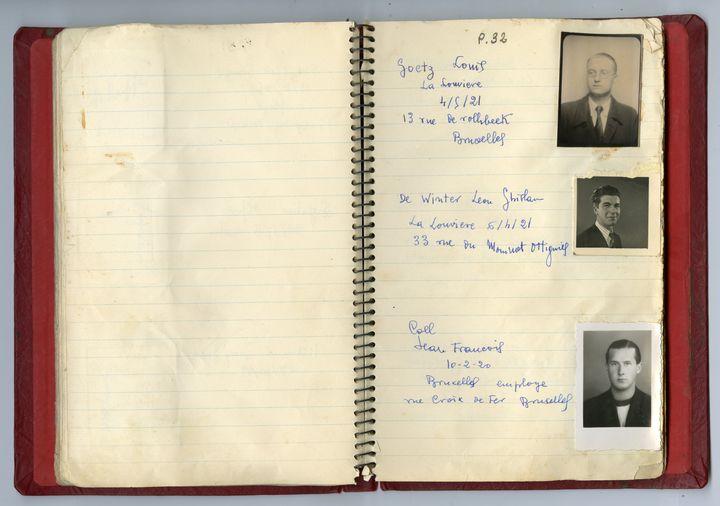 P.32
Goetz Louis
La Louviere
4/5/21
13 rue De rollebeek
Bruxelles
De Winter Leon Ghislain
La Louviere 5/4/21
33 rue Du Ottignies
Coll
Jean Francois
10-2-20
Bruxelles employe
rue Croix De Fer Bruxelles